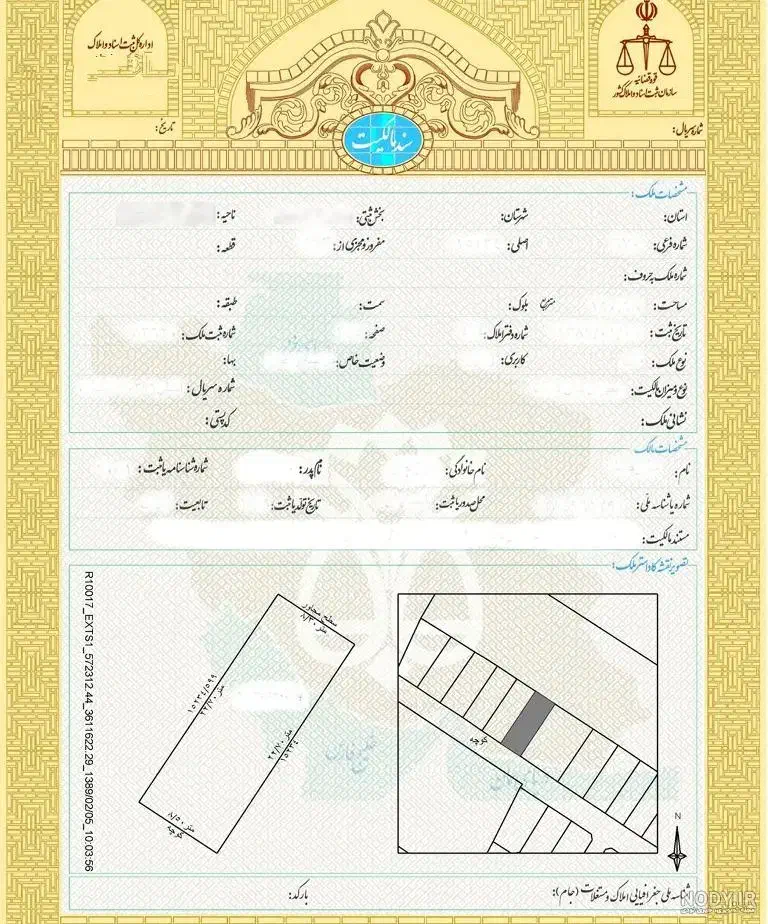 اداره کل ثبت اسناد و املاک
قوه قضائیه
سازمان ثبت اسناد و املاک کشور
تاریخ:
شماره سریال:
سند مالکیت
مشخصات ملک:
استان: شهرستان: بخش ثبتی: ناحیه:
شماره فرعی: اصلی: مفروز و مجزی از: قطعه:
شماره ملک به حروف:
مساحت: مترمربع بلوک: سمت: طبقه:
تاریخ ثبت: شماره دفتر املاک: صفحه: شماره ثبت ملک:
نوع ملک: کاربری: وضعیت خاص: بهاء:
نوع و میزان مالکیت: شماره سریال:
نشانی ملک: کدپستی:
مشخصات مالک
نام: نام خانوادگی: نام پدر: شماره شناسنامه یا ثبت:
شماره یا شناسه ملی: محل صدور یا ثبت: تاریخ تولد یا ثبت: تابعیت:
مستند مالکیت:
تصویر نقشه کاداستر ملک:
سطح مجاور
۸/۳۰ متر
۱۵۲۳۴/۵۹۹
۲۲/۷۰ متر
۲۲/۷۰ متر
۱۵۲۳۴
۸/۵۰ متر
کوچه
کوچه
N
خلیج فارس
R10017_EXTS1_572312.44_3611622.29_1389/02/05_10:03:56
شناسه ملی جغرافیایی املاک و مستغلات (جام): بارکد:
NODY.IR